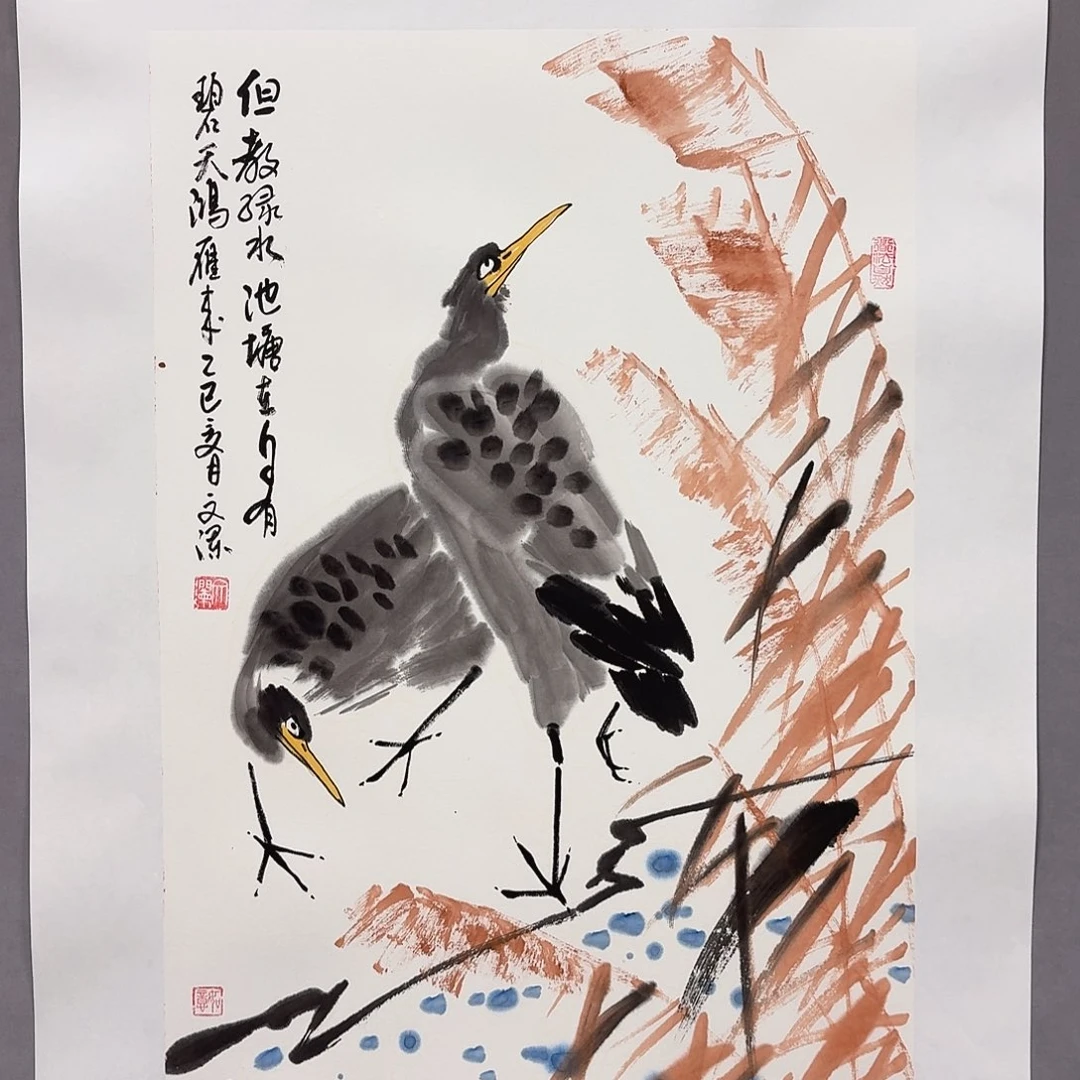 但教绿水池塘在自有
碧天鸿雁来乙巳亥月文澜
文澜